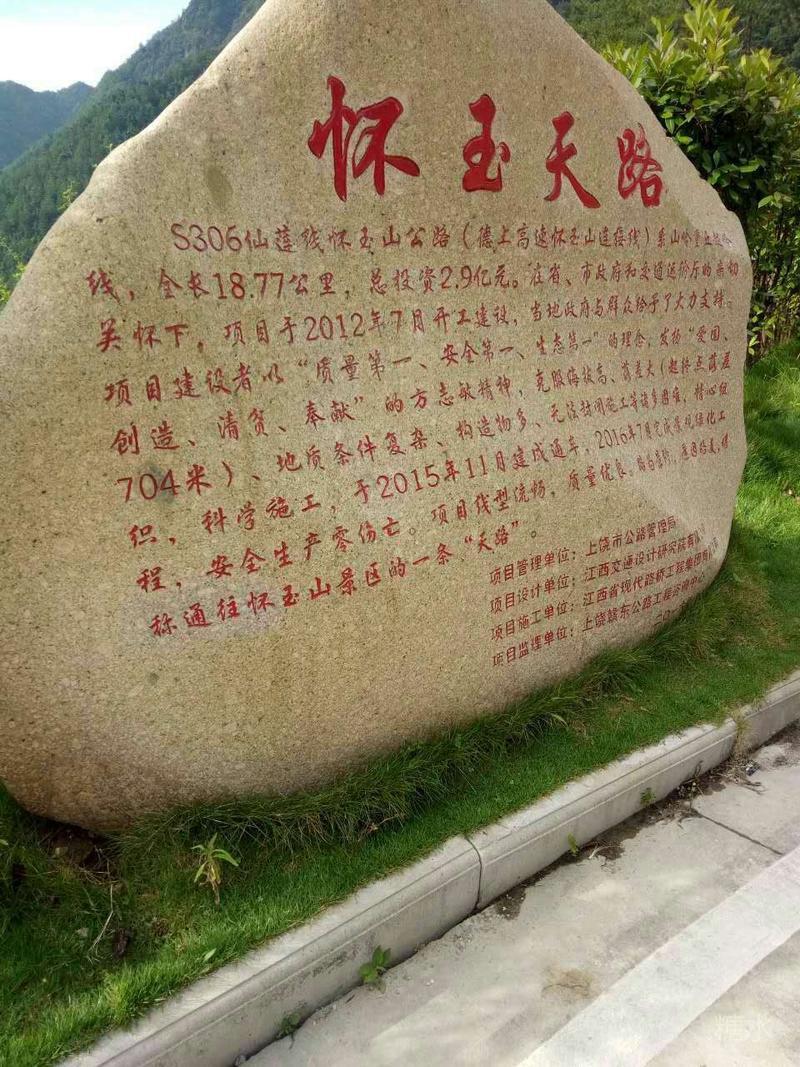 怀玉天路
S306仙莲线怀玉山公路（德上高速怀玉山连接线）系山岭重丘
线，全长18.77公里，总投资2.9亿元。在省、市政府和交通运输厅的亲切
关怀下，项目于2012年7月开工建设，当地政府与群众给予了大力支持。
项目建设者以“质量第一、安全第一、生态第一”的理念，发扬“爱国、
创造、清贫、奉献”的方志敏精神，克服海拔高、落差大（起终点落差
704米）、地质条件复杂、构造物多、无法封闭施工等诸多困难，精心组
织，科学施工，于2015年11月建成通车，2016年7月完成景观绿化工
程，安全生产零伤亡。项目线型流畅，质量优良，
称通往怀玉山景区的一条“天路”。
项目管理单位：上饶市公路管理局
项目设计单位：江西交通设计研究院有
项目施工单位：江西省现代路桥工程集团有
项目监理单位：上饶赣东公路工程